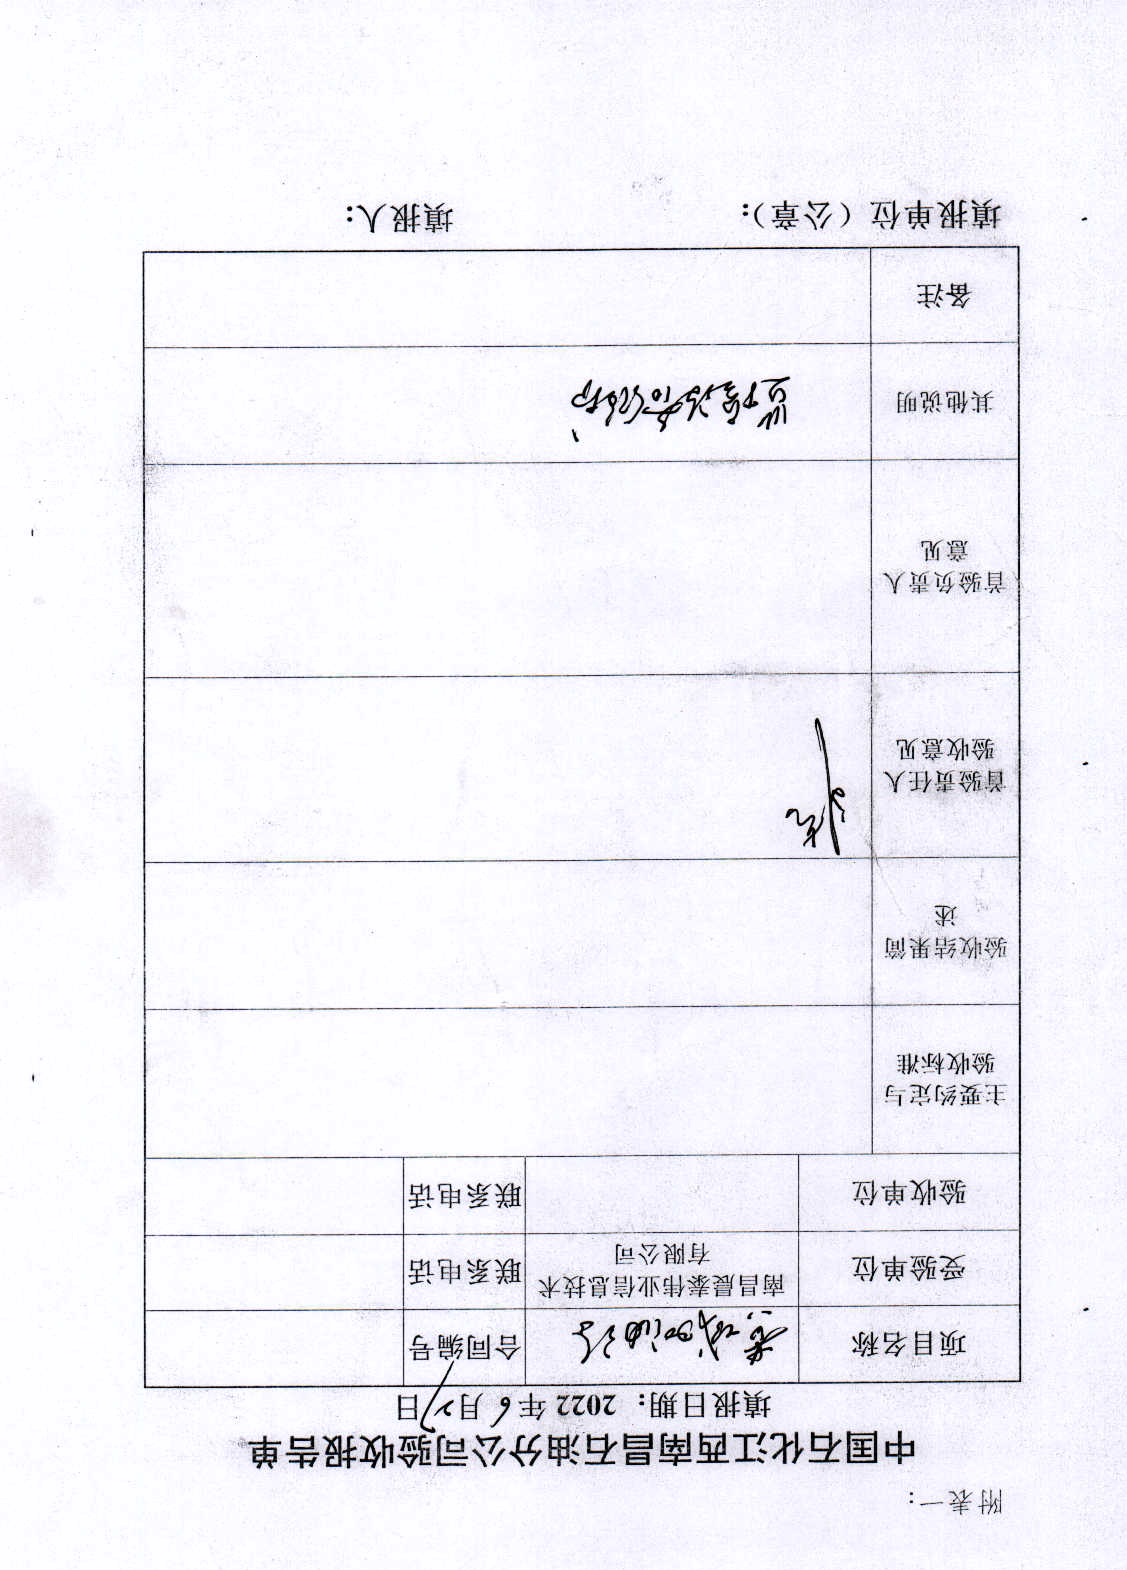 附表一:
中国石化江西南昌石油分公司验收报告单
填报日期: 2022 年 6 月 日
项目名称 加油站 合同编号
受验单位 南昌晨泰伟业信息技术 联系电话
有限公司
验收单位 联系电话
主要约定与
验收标准
验收结果简
述
首验责任人
验收意见
首验负责人
意见
其他说明
备注
填报单位（公章）: 填报人: